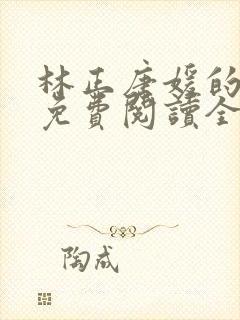 林正唐媛的
免費閱讀全
陶成